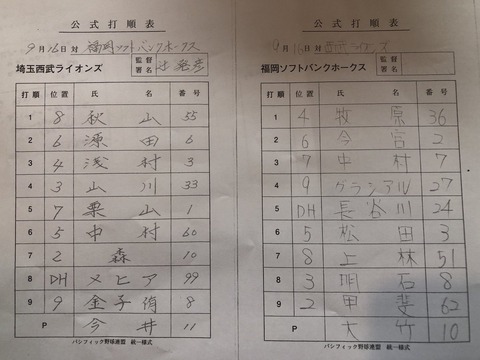 公式打順表
9月16日 対 福岡ソフトバンクホークス
埼玉西武ライオンズ 監督署名 辻発彦
打順 位置 氏名 番号
1 8 秋山 55
2 6 源田 6
3 4 浅村 3
4 3 山川 33
5 7 栗山 1
6 5 中村 60
7 2 森 10
8 DH メヒア 99
9 9 金子侑 8
P 今井 11
パシフィック野球連盟 統一様式
公式打順表
9月16日 対 西武ライオンズ
福岡ソフトバンクホークス 監督署名
打順 位置 氏名 番号
1 4 牧原 36
2 6 今宮 2
3 7 中村 7
4 9 グラシアル 27
5 DH 長谷川 24
6 5 松田 3
7 8 上林 51
8 3 明石 8
9 2 甲斐 62
P 大竹 10
パシフィック野球連盟 統一様式